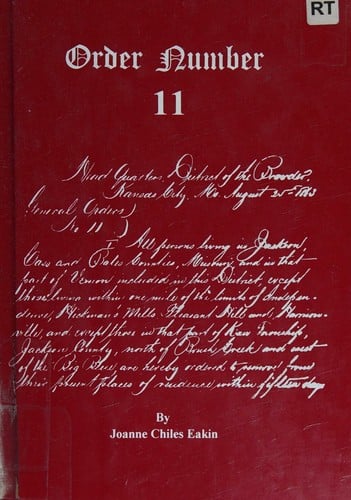 RT
Order Number
11
Head Quarters, District of the Border,
Kansas City, Mo. August 25th 1863
General Orders)
No 11 )
I All persons living in Jackson,
Cass and Bates Counties, Missouri, and in that
part of Vernon included in this District, except
those living within one mile of the limits of Indepen-
dence, Hickman's Mills, Pleasant Hill and Harrison-
ville, and except those in that part of Kaw Township,
Jackson County, north of Brush Creek and west
of the Big Blue, are hereby ordered to remove from
their present places of residence within fifteen days
By
Joanne Chiles Eakin